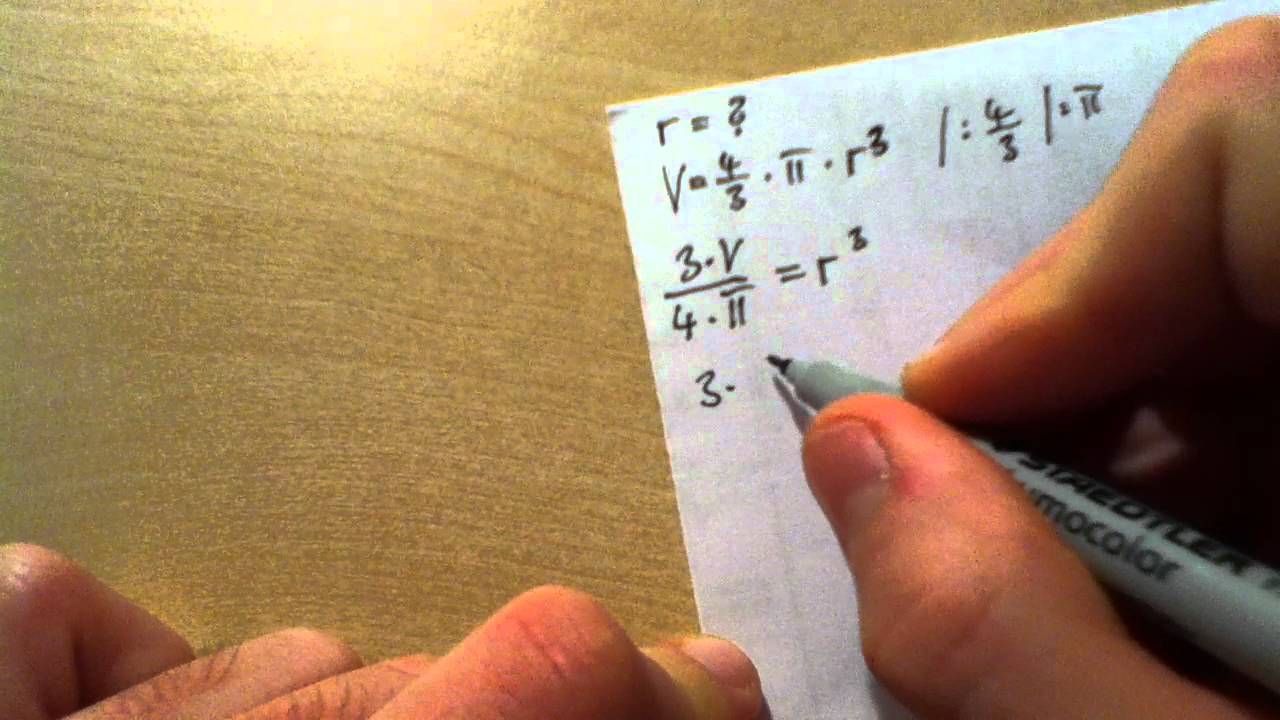 r = ?
V = 4/3 · π · r³ | : 4/3 | : π
3 · V / 4 · π = r³
3 ·
STAEDTLER
umocolor